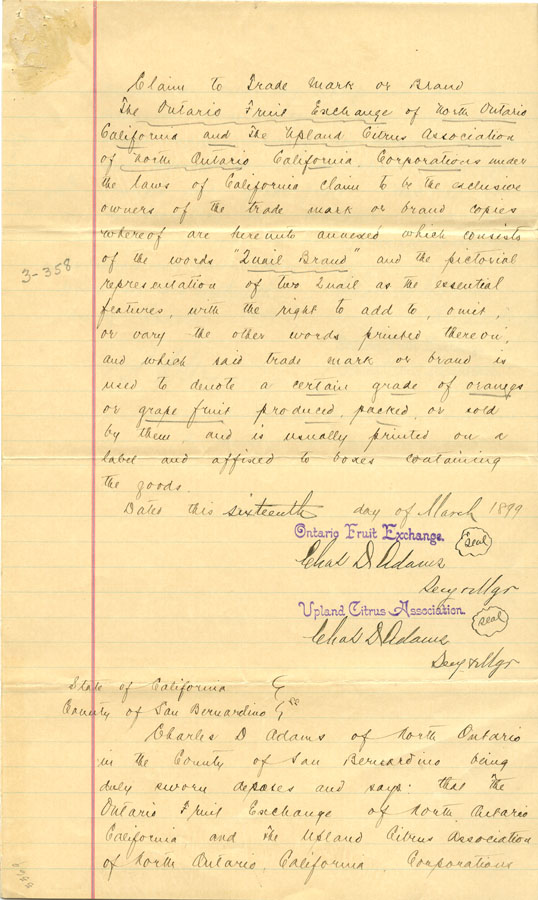 Claim to Trade Mark or Brand
The Ontario Fruit Exchange of North Ontario
California and The Upland Citrus Association
of North Ontario California, Corporations under
the laws of California claim to be the exclusive
owners of the trade mark or brand copies
whereof are hereunto annexed which consists
of the words "Quail Brand" and the pictorial
3-358
representation of two Quail as the essential
features, with the right to add to, omit,
or vary the other words printed thereon,
and which said trade mark or brand is
used to denote a certain grade of oranges
or grape fruit produced, packed, or sold
by them, and is usually printed on a
label and affixed to boxes containing
the goods.
Dated this sixteenth day of March 1899
Ontario Fruit Exchange. seal
Chas D Adams
Secy & Mgr
Upland Citrus Association. seal
Chas D Adams
Secy & Mgr
State of California
County of San Bernardino ss
Charles D Adams of North Ontario
in the County of San Bernardino being
duly sworn deposes and says: that The
Ontario Fruit Exchange of North Ontario
California and The Upland Citrus Association
of North Ontario, California, Corporations